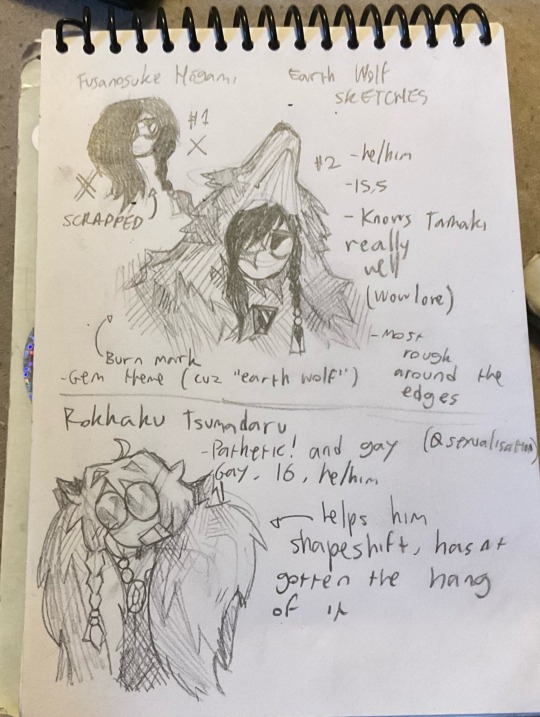 Fusanosuke Hagami
Earth Wolf
SKETCHES
#1
X
SCRAPPED
#2 - he/him
- 15,5
- Knows Tamaki
really
well
(wow lore)
- Most
rough
around the
edges
Burn mark
- Gem theme (cuz "earth wolf")
Rokkaku Tsumadaru
- Pathetic! and gay
Gay, 16, he/him
helps him
shapeshift, hasnt
gotten the hang
of it